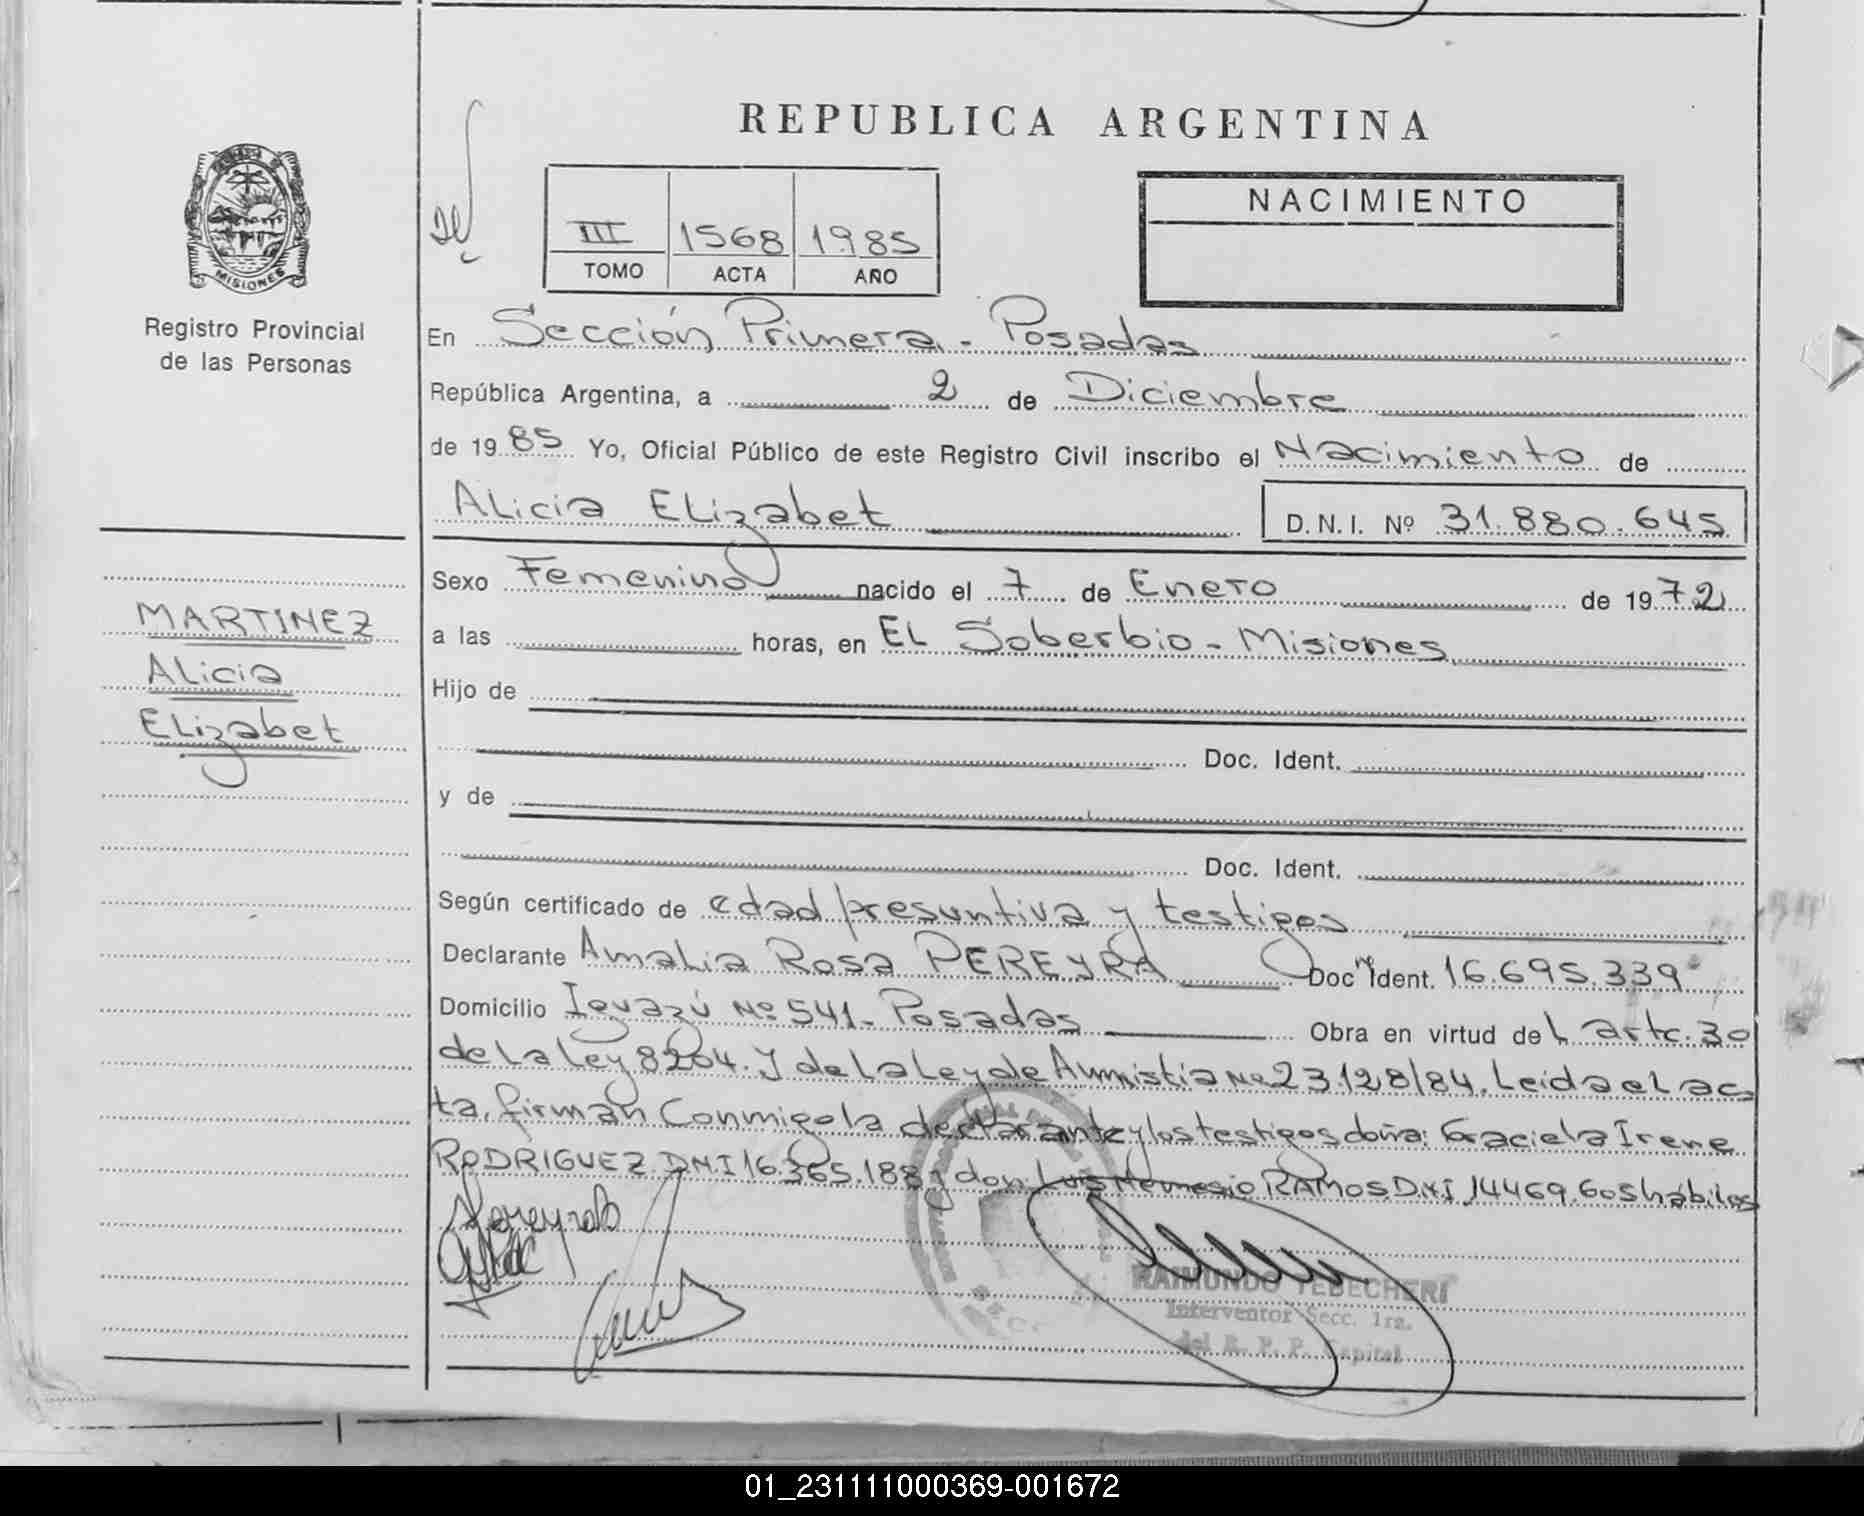 REPUBLICA ARGENTINA
NACIMIENTO
III 1568 1985
TOMO ACTA AÑO
MISIONES
Registro Provincial
de las Personas
En Sección Primera - Posadas
República Argentina, a 2 de Diciembre
de 1985 Yo, Oficial Público de este Registro Civil inscribo el Nacimiento de
Alicia Elizabet D.N.I. Nº 31.880.645
Sexo Femenino nacido el 7 de Enero de 1972
MARTINEZ
Alicia
Elizabet
a las horas, en El Soberbio - Misiones
Hijo de
Doc. Ident.
y de
Doc. Ident.
Según certificado de edad presuntiva y testigos
Declarante Amalia Rosa PEREYRA Doc. Ident. 16.695.339
Domicilio Iguazú Nº 541 - Posadas Obra en virtud del artc. 30
de la Ley 8204. y de la Ley de Amnistia Nº 23.128/84. Leida el ac
ta, firman conmigo la declarante y los testigos doña: Graciela Irene
RODRIGUEZ D.N.I 16.365.188 y don Luis Nemesio RAMOS D.N.I 14469.605 hábiles
RAIMUNDO TEBECHERI
Interventor Secc. 1ra.
del R. P. P. Capital
01_231111000369-001672